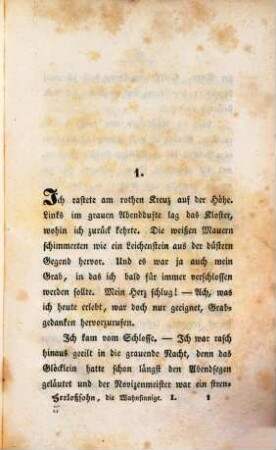 1.
Ich rastete am rothen Kreuz auf der Höhe.
Links im grauen Abenddufte lag das Kloster,
wohin ich zurück kehrte. Die weißen Mauern
schimmerten wie ein Leichenstein aus der düstern
Gegend hervor. Und es war ja auch mein
Grab, in das ich bald für immer verschlossen
werden sollte. Mein Herz schlug! — Ach, was
ich heute erlebt, war doch nur geeignet, Grab-
gedanken hervorzurufen.
Ich kam vom Schlosse. — Ich war rasch
hinaus geeilt in die grauende Nacht, denn das
Glöcklein hatte schon längst den Abendsegen
geläutet und der Novizenmeister war ein stren-
Herloßsohn, die Wahnsinnige. I. 1